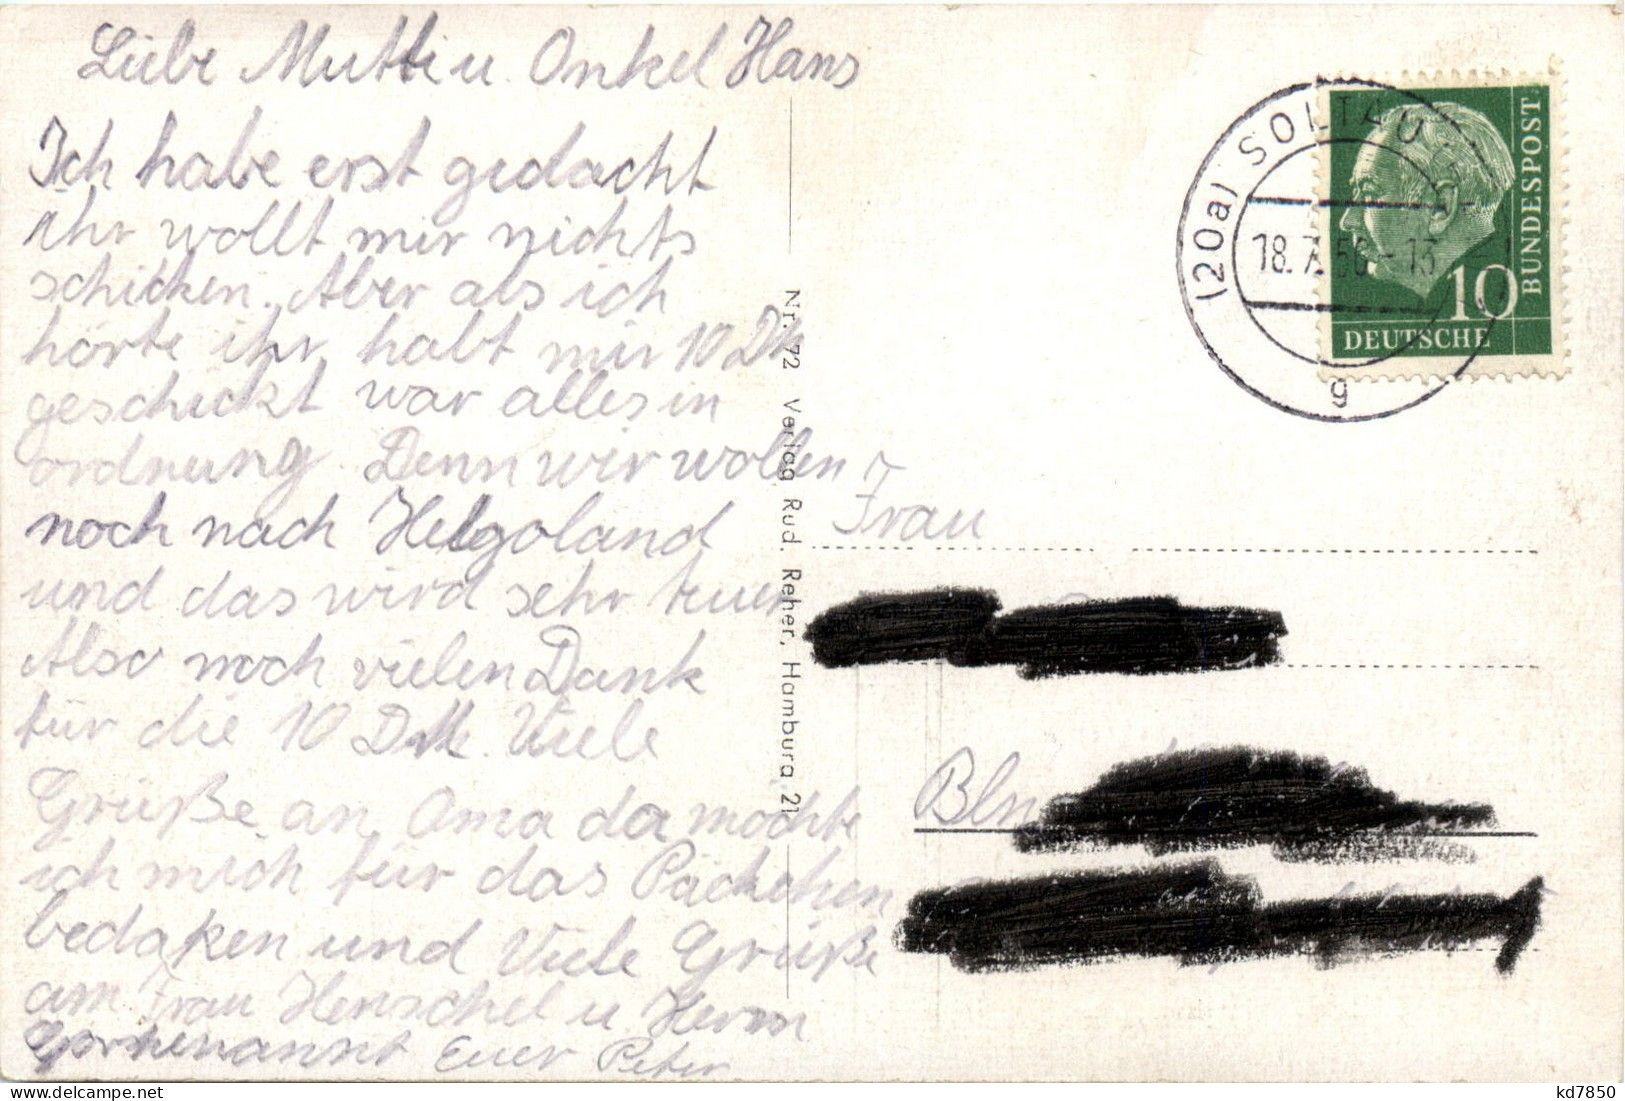 Liebe Mutti u. Onkel Hans
Ich habe erst gedacht
ihr wollt mir nichts
schicken. Aber als ich
hörte ihr habt mir 10 DM
geschickt war alles in
ordnung. Denn wir wollen
noch nach Helgoland
und das wird sehr teuer
Also noch vielen Dank
für die 10 DM. Viele
Grüße an Oma da möchte
ich mich für das Päckchen
bedaken und Viele Grüße
am Frau Henschel u Herrn
Euer Peter
Nr. 72 Verlag Rud. Reher, Hamburg 21
(20a) SOLTAU
18.7.56.-13
g
DEUTSCHE
BUNDESPOST
10
Frau
Bln
kd7850